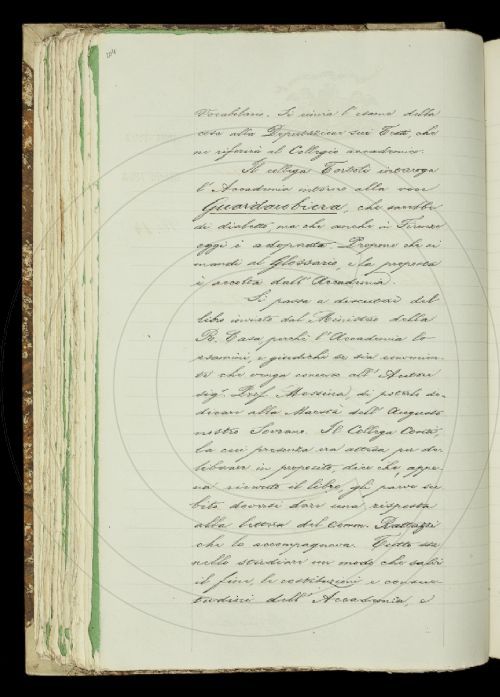 204
Vocabolario. Si invia l'esame della
cosa alla Deputazione sui Testi, che
ne riferirà al Collegio accademico.
Il collega Tortoli interroga
l'Accademia intorno alla voce
Guardarobiera, che sarebbe
di dialetto, ma che anche in Firenze
oggi è adoprata. Propone che si
mandi al Glossario, e la proposta
è accolta dall'Accademia.
Si passa a discutere del
libro inviato dal Ministro della
R. Casa perchè l'Accademia lo
esamini, e giudichi se sia convenien-
te che venga concesso all'Autore
sig. Prof. Messina, di poterlo de-
dicare alla Maestà dell'Augusto
nostro Sovrano. Il Collega Conti,
la cui presenza era attesa per de-
liberare in proposito, dice che, appe-
na ricevuto il libro, gli parve su-
bito doversi dare una risposta
alla lettera del Comm. Rattazzi
che lo accompagnava. Tutto sta
nello studiare un modo che salvi
il fine, le costituzioni e consue-
tudini dell'Accademia, e